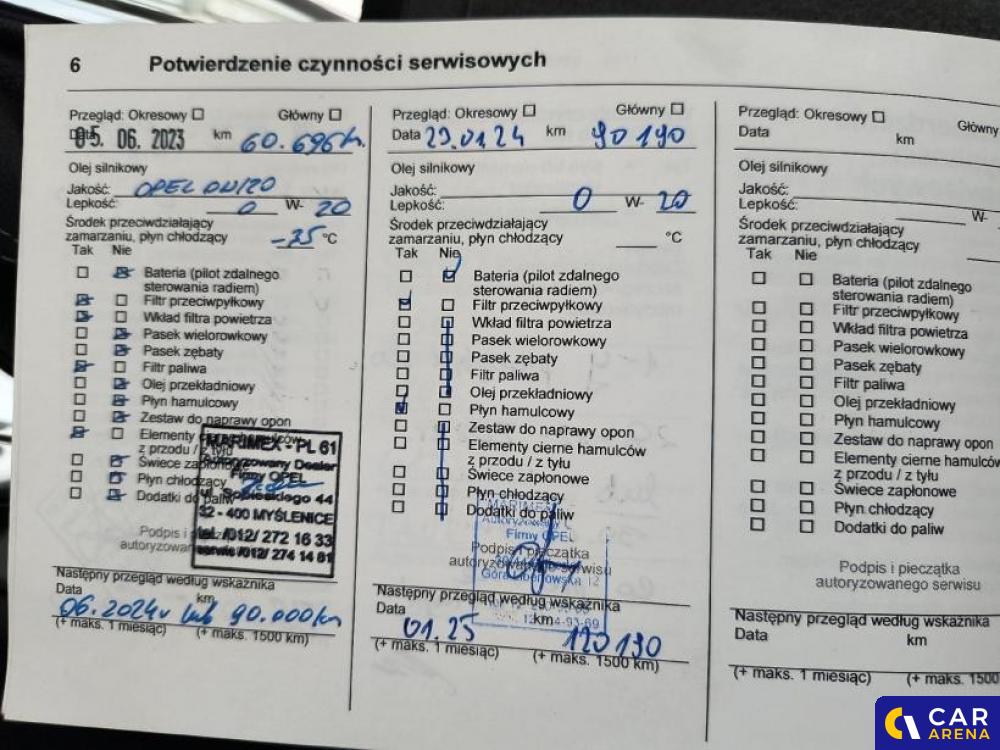 6 Potwierdzenie czynności serwisowych
Przegląd: Okresowy Główny
Data 05. 06. 2023 km 60.696
Olej silnikowy
Jakość: OPEL 0W/20
Lepkość: 0 W- 20
Środek przeciwdziałający
zamarzaniu, płyn chłodzący -35 °C
Tak Nie
Bateria (pilot zdalnego
sterowania radiem)
Filtr przeciwpyłkowy
Wkład filtra powietrza
Pasek wielorowkowy
Pasek zębaty
Filtr paliwa
Olej przekładniowy
Płyn hamulcowy
Zestaw do naprawy opon
Elementy
z przodu / z tyłu
Świece zapłonowe
Płyn chłodzący
Dodatki do paliw
MARIMEX - PL 61
Autoryzowany Dealer
Firmy OPEL
ul. Sobieskiego 44
32 - 400 MYŚLENICE
tel. /012/ 272 16 33
serwis /012/ 274 14 81
Podpis i
autoryzowan
Następny przegląd według wskaźnika
Data km
06.2024r lub 90.000km
(+ maks. 1 miesiąc) (+ maks. 1500 km)
Przegląd: Okresowy Główny
Data 29.01.24 km 90 190
Olej silnikowy
Jakość:
Lepkość: 0 W- 20
Środek przeciwdziałający
zamarzaniu, płyn chłodzący °C
Tak Nie
Bateria (pilot zdalnego
sterowania radiem)
Filtr przeciwpyłkowy
Wkład filtra powietrza
Pasek wielorowkowy
Pasek zębaty
Filtr paliwa
Olej przekładniowy
Płyn hamulcowy
Zestaw do naprawy opon
Elementy cierne hamulców
z przodu / z tyłu
Świece zapłonowe
Płyn chłodzący
Dodatki do paliw
MARIMEX
Firmy OPEL
Podpis i pieczątka
autoryzowanego serwisu
Następny przegląd według wskaźnika
Data km
01.25 120190
(+ maks. 1 miesiąc) (+ maks. 1500 km)
Przegląd: Okresowy Główny
Data km
Olej silnikowy
Jakość:
Lepkość: W-
Środek przeciwdziałający
zamarzaniu, płyn chłodzący
Tak Nie
Bateria (pilot zdalnego
sterowania radiem)
Filtr przeciwpyłkowy
Wkład filtra powietrza
Pasek wielorowkowy
Pasek zębaty
Filtr paliwa
Olej przekładniowy
Płyn hamulcowy
Zestaw do naprawy opon
Elementy cierne hamulców
z przodu / z tyłu
Świece zapłonowe
Płyn chłodzący
Dodatki do paliw
Podpis i pieczątka
autoryzowanego serwisu
Następny przegląd według wskaźnika
Data km
(+ maks. 1 miesiąc) (+ maks. 1500
CAR
ARENA